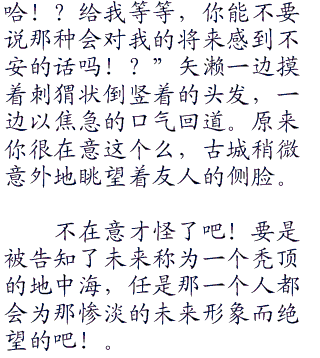 哈！？给我等等，你能不要
说那种会对我的将来感到不
安的话吗！？”矢濑一边摸
着刺猬状倒竖着的头发，一
边以焦急的口气回道。原来
你很在意这个么，古城稍微
意外地眺望着友人的侧脸。
不在意才怪了吧！要是
被告知了未来称为一个秃顶
的地中海，任是那一个人都
会为那惨淡的未来形象而绝
望的吧！。